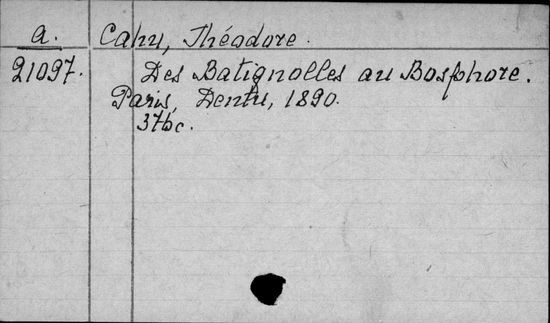 a. Cahu, Théodore.
21097. Des Batignolles au Bosphore.
Paris, Dentu, 1890.